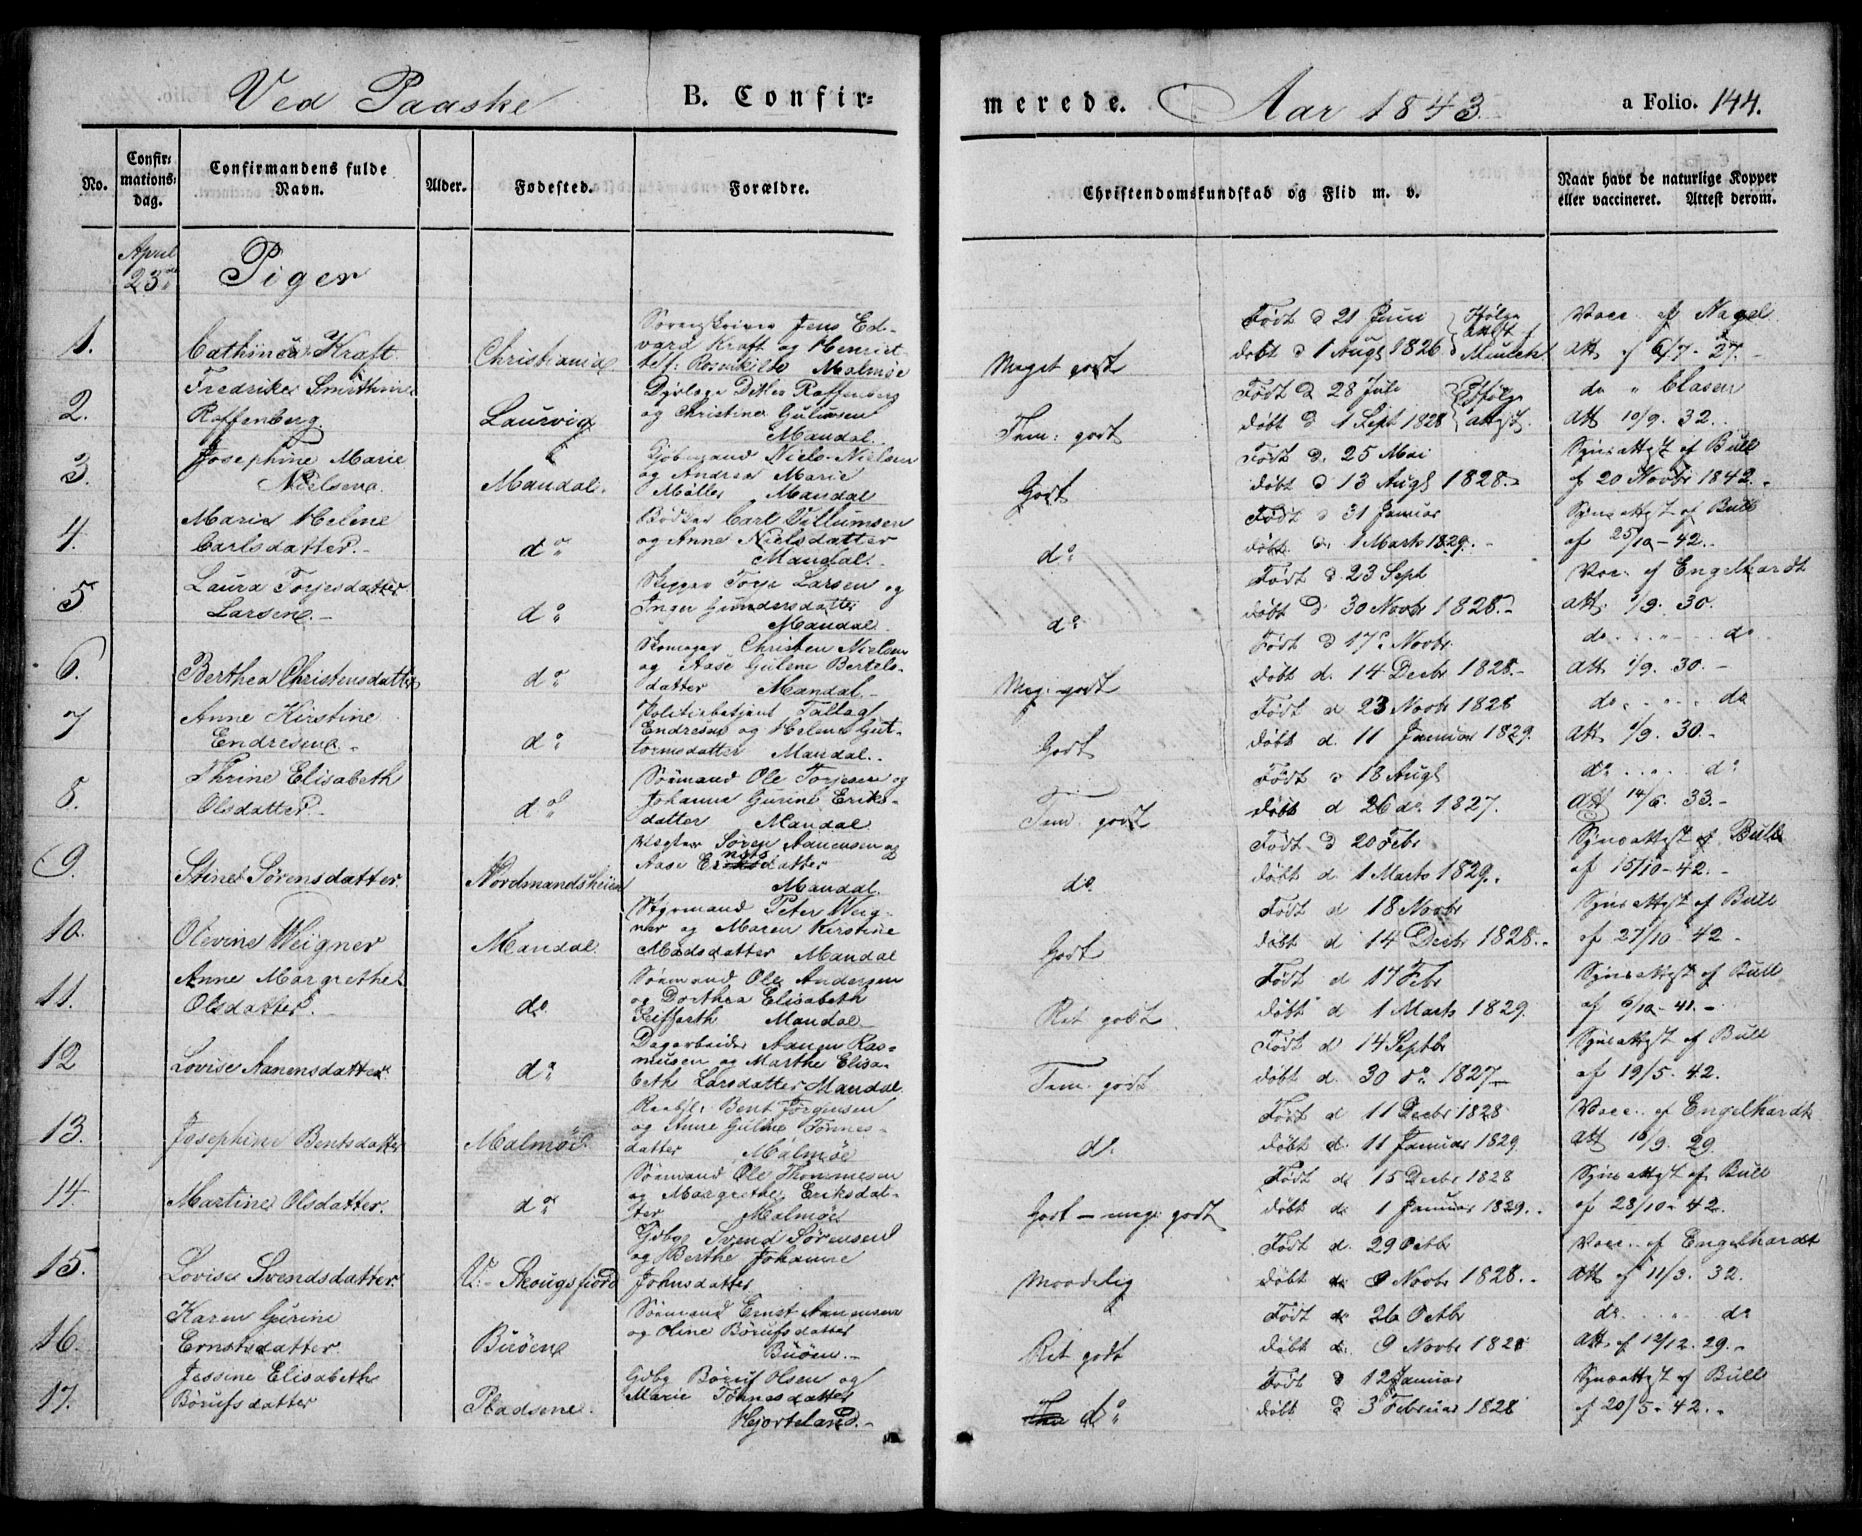 Ved Paaske B. Confir=
merede. Aar 1843 a Folio. 144.
No.
Confir=
mations=
dag.
Confirmandens fulde
Navn.
Alder.
Fødested.
Forældre.
Christendomskundskab og Flid m. v.
Naar havt de naturlige Kopper
eller vaccineret. Attest derom.
April
23
Piger
1.
Cathinca Kraft
Christiania
Sorenskriver Jens Ed-
vard Kraft og Henriet-
Malmøe
Meget godt
Født d 21 Juni
døbt d 1 Augt 1826
Vacc. af Nagel
Att 27.
2.
Fredrikke Smithine
Roffenberg.
Laurvig
Roffenberg
og Christine Gulusen
Mandal.
Tem: godt
Født d 28 Juli
døbt d 1 Sept 1828
do " Clasen
Att 10/9. 32.
3.
Josephine Marie
Nielsen
Mandal.
Niels Nielsen
og Andrea Marie
Møller Mandal
Godt
Født d. 25 Mai
døbt d 13 Augt 1828
Synsattest af Bull
af 20 Novbr 1842.
4.
Maria Helene
Carlsdatter.
do
Bødker Carl Villumsen
og Anne Nielsdatter
Mandal.
do
Født d 31 Januar
døbt d. 1 Marts 1829.
Synsattest af Bull
af 25/10-42.
5
Laura Torjesdatter
Larsen.
do
Skipper Torje Larsen og
Inger Gundersdatter
Mandal.
do
Født d. 23 Sept
døbt d. 30 Novbr 1828.
Vacc. af Engelhardt
Att. 1/9. 30.
6.
Berthea Christensdatter
do
Skomager Christen Nielsen
og Aase Gulene Bertels-
datter Mandal.
Meg: godt
Født d 17 Novbr
døbt d. 14 Decbr 1828.
do " do
Att 1/9. 30.
7
Anne Kirstine
Endresen.
do
Politiebetjent Tallag
Endresen og Helene Gut-
tormsdatter Mandal.
Godt
Født d 23 Novbr 1828
døbt d. 11 Januar 1829.
do " do
Att 1/9. 30.
8.
Thrine Elisabeth
Olsdatter.
do
Sømand Ole Torjesen og
Johanne Gurine Eriks-
datter Mandal
Tem. godt
Født d 18 Augt
døbt d 26 do 1827.
do " do
Att 14/6. 33.
9.
Stine Sørensdatter.
Nordmandsheien
Vægter Søren Aanensen og
Aase datter
Mandal.
do.
Født d 20 Febr
døbt d. 1 Marts 1829.
Synsattest af Bull
af 15/10-42.
10.
Olevine Weigner
Mandal.
Styrmand Peter Weig-
ner og Maren Kirstine
Madsdatter Mandal
Godt
Født d 18 Novbr
døbt d 14 Decbr 1828.
Synsattest af Bull
af 27/10-42.
11.
Anne Margrethe
Olsdatter.
do.
Sømand Ole Andersen
og Dorthea Elisabeth
Mandal
Ret godt
Født d 17 Febr
døbt d 1 Marts 1829.
Synsattest af Bull
af 6/10-41.
12
Lovise Aanensdatter
do
Dagarbeider Aanen Ras-
musen og Marthe Elisa-
beth Larsdatter Mandal
Tem. godt
Født d 14 Septbr
døbt d. 30 do 1827
Synsattest af Bull
af 19/5. 42.
13.
Josephine Bentsdatter
Malmøe
Bent Jørgensen
og Anne Guline Tønnes-
datter Malmøe
do.
Født d 11 Decbr 1828
døbt d. 11 Januar 1829
Vacc. af Engelhardt
Att 16/9. 29.
14.
Martine Olsdatter.
do
Sømand Ole Thommesen
og Margrethe Eriksdat-
ter Malmøe
Godt - meg: godt
Født d 15 Decbr 1828
døbt d. 1 Januar 1829.
Synsattest af Bull
af 28/10-42.
15.
Lovise Svendsdatter.
V: Skougsfjord
Gdbg Svend Sørensen
og Berthe Johanne
Johnsdatter
Maadelig
Født d. 29 Octbr
døbt d. 9 Novbr 1828.
Vacc. af Engelhardt
Att af 11/3. 32.
16.
Karen Gurine
Ernstsdatter.
Buøen
Sømand Ernst Aanensen
og Oline Børufsdatter
Buøen.
Ret godt
Født d. 26 Octbr
døbt d. 9 Novbr 1828
do " do
Att af 12/12. 29.
17.
Jessine Elisabeth
Børufsdatter
Pladsene.
Gdbg Børuf Olsen og
Marie Tønnesdatter
Hjorteland.
do
Født d 12 Januar
døbt d 3 Februar 1828
Synsattest af Bull
af 20/5-42.